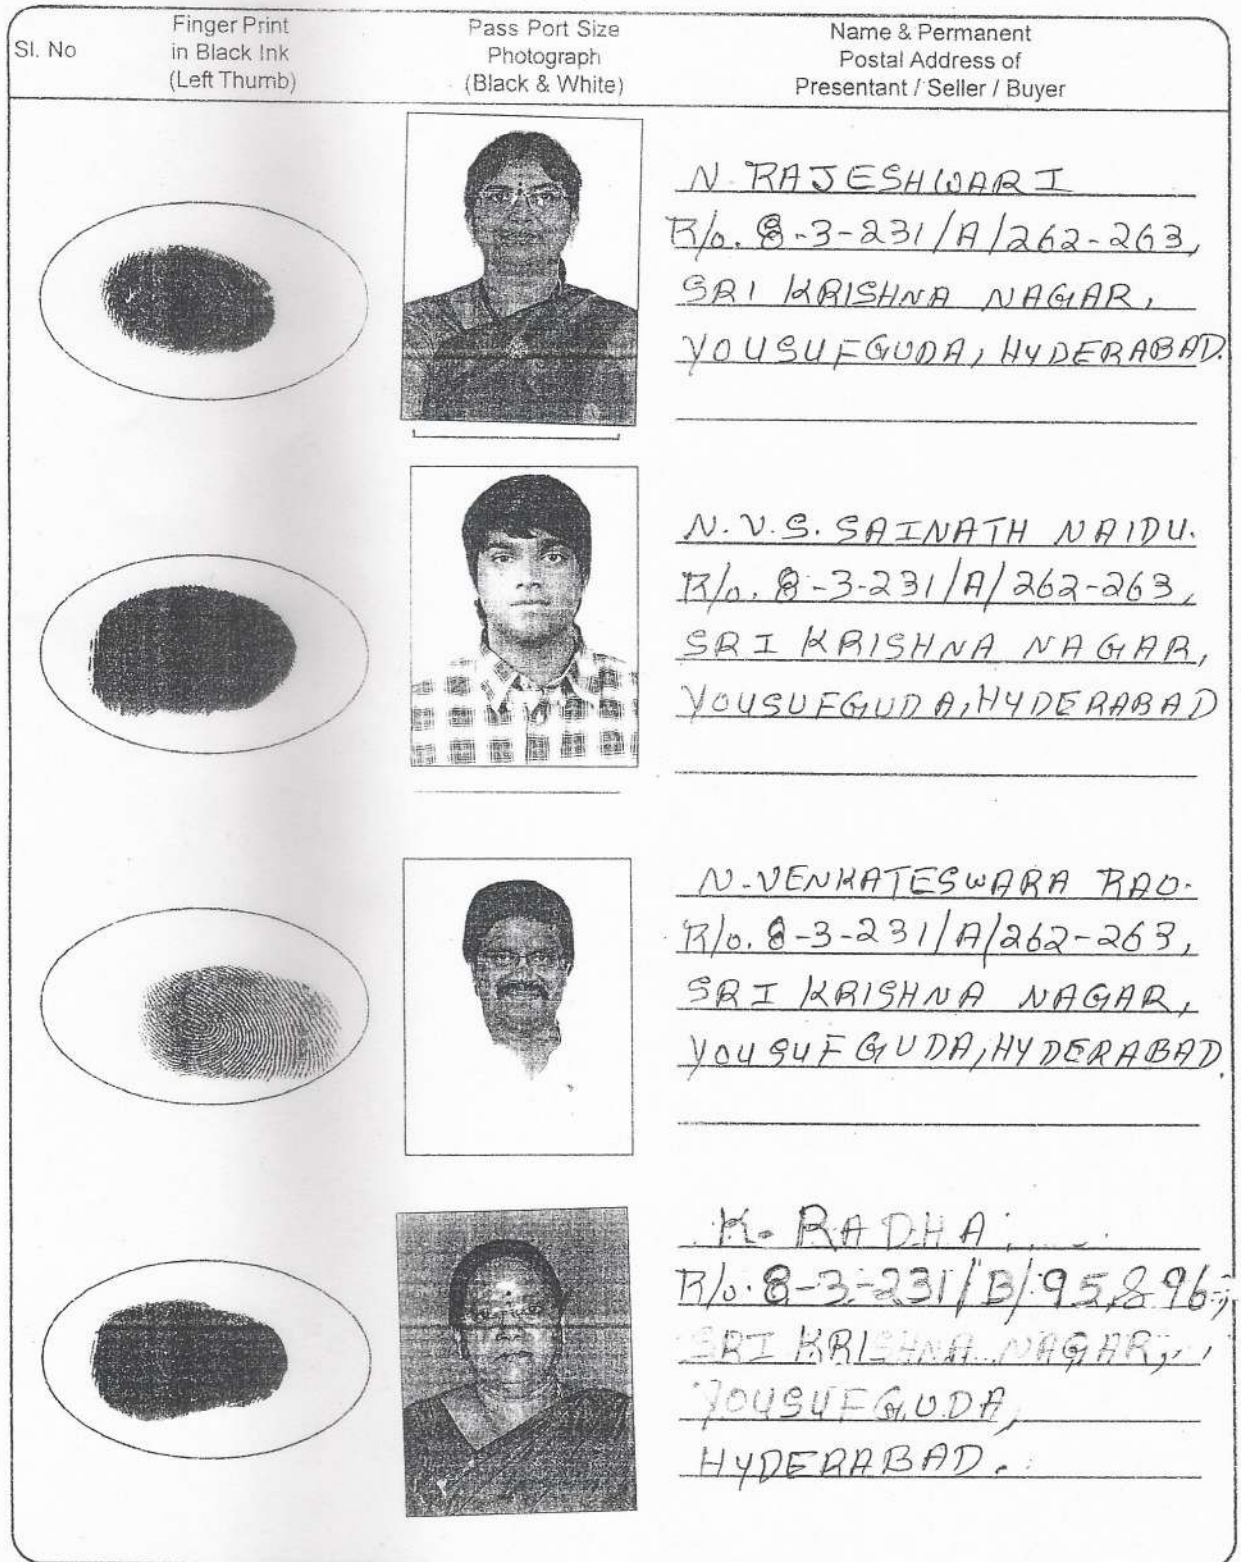 Sl. No
Finger Print
in Black Ink
(Left Thumb)
Pass Port Size
Photograph
(Black & White)
Name & Permanent
Postal Address of
Presentant / Seller / Buyer
N. RAJESHWARI
R/o. 8-3-231/A/262-263,
SRI KRISHNA NAGAR,
YOUSUFGUDA, HYDERABAD.
N.V.S. SAINATH NAIDU.
R/o. 8-3-231/A/262-263,
SRI KRISHNA NAGAR,
YOUSUFGUDA, HYDERABAD
N. VENKATESWARA RAO.
R/o. 8-3-231/A/262-263,
SRI KRISHNA NAGAR,
YOUSUFGUDA, HYDERABAD.
K. RADHA
R/o. 8-3-231/B/95 & 96,
SRI KRISHNA NAGAR,
YOUSUFGUDA,
HYDERABAD.